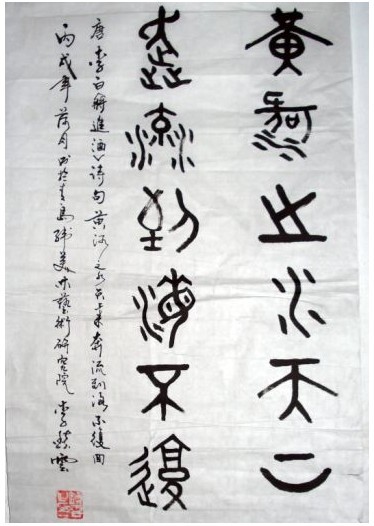 黃河之水天上
奔流到海不復
唐李白將進酒诗句黄河之水天上来奔流到海不復回
丙戌年荷月书於青島美术藝術研究院李雲